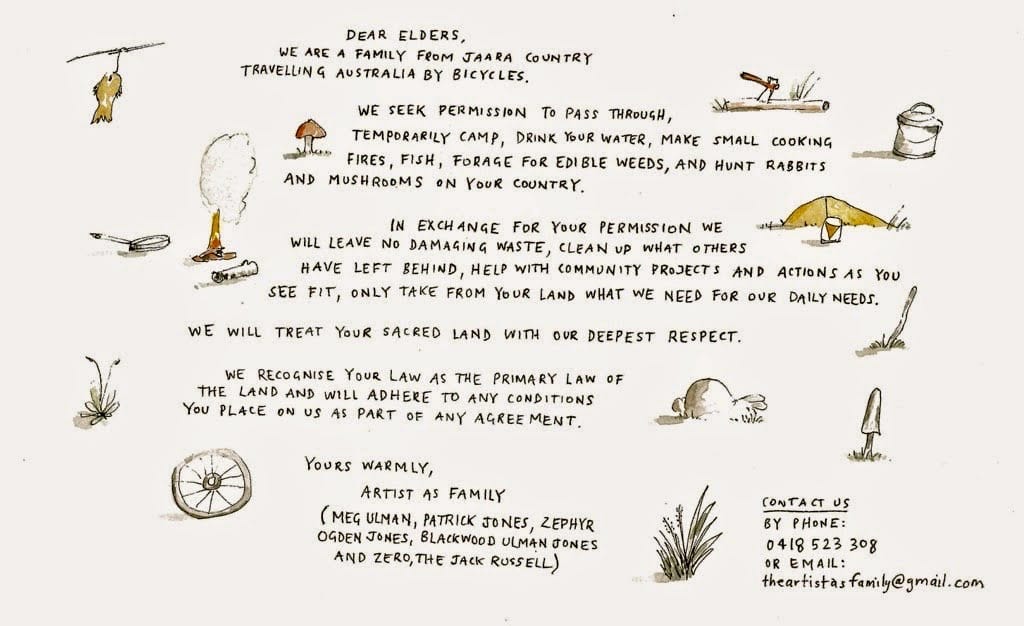 DEAR ELDERS,
WE ARE A FAMILY FROM JAARA COUNTRY
TRAVELLING AUSTRALIA BY BICYCLES.
WE SEEK PERMISSION TO PASS THROUGH,
TEMPORARILY CAMP, DRINK YOUR WATER, MAKE SMALL COOKING
FIRES, FISH, FORAGE FOR EDIBLE WEEDS, AND HUNT RABBITS
AND MUSHROOMS ON YOUR COUNTRY.
IN EXCHANGE FOR YOUR PERMISSION WE
WILL LEAVE NO DAMAGING WASTE, CLEAN UP WHAT OTHERS
HAVE LEFT BEHIND, HELP WITH COMMUNITY PROJECTS AND ACTIONS AS YOU
SEE FIT, ONLY TAKE FROM YOUR LAND WHAT WE NEED FOR OUR DAILY NEEDS.
WE WILL TREAT YOUR SACRED LAND WITH OUR DEEPEST RESPECT.
WE RECOGNISE YOUR LAW AS THE PRIMARY LAW OF
THE LAND AND WILL ADHERE TO ANY CONDITIONS
YOU PLACE ON US AS PART OF ANY AGREEMENT.
YOURS WARMLY,
ARTIST AS FAMILY
(MEG ULMAN, PATRICK JONES, ZEPHYR
OGDEN JONES, BLACKWOOD ULMAN JONES
AND ZERO, THE JACK RUSSELL)
CONTACT US
BY PHONE:
0418 523 308
OR EMAIL:
theartistasfamily@gmail.com